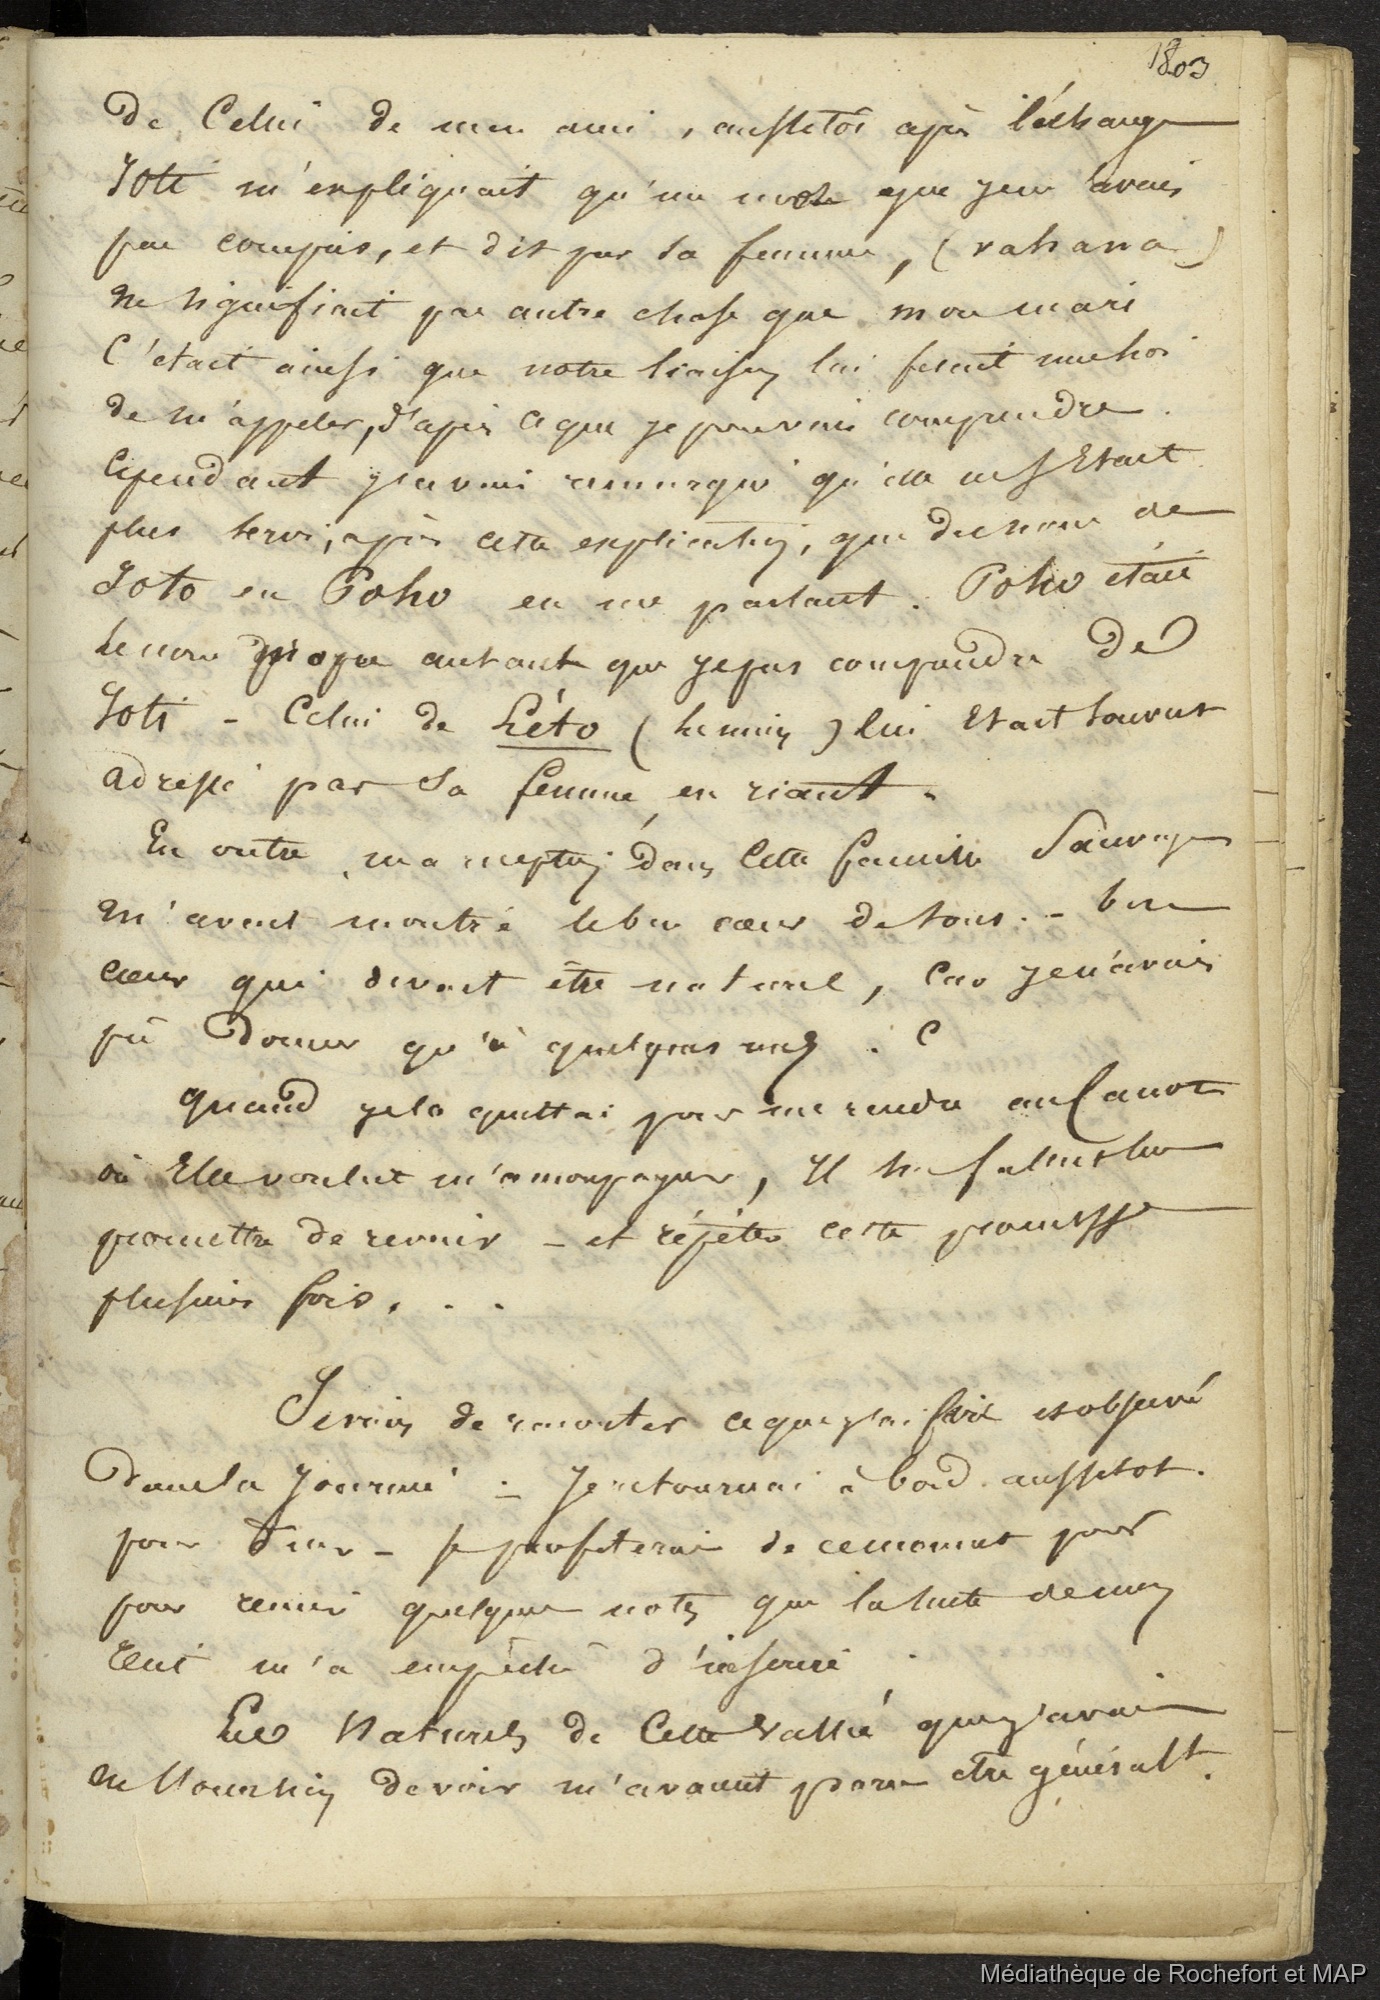 1803
De Celui de mon ami, aussitôt après l'échange
Toti m'expliquait qu'un mot que j'en avais
pas compris, et dit par sa femme, (vahana)
ne signifiait pas autre chose que mon mari
C'était ainsi que notre liaison lui fesait
de m'appeler, d'après ce que je pouvais comprendre.
Cependant j'avais remarqué qu'elle ne s'Etait
plus servi, après cette explication, que du nom de
Toto en Poho en me parlant. Poho était
le nom propre autant que je pus comprendre De
Toti - Celui de Léto (le mien) lui Etait souvent
adressé par sa femme en riant.
En outre, ma réception dans Cette famille Sauvage
m'avait montré le bon cœur de tous. - bon
cœur qui devait être naturel, Car je n'avais
pû Donner qu'à quelques uns.
Quand je la quittai pour me rendre au Canot
où Elle voulut m'accompagner, Il
promettre de revenir - et répéter cette promesse
plusieurs fois. . .
Je viens de raconter ce que j'ai fait et observé
Dans la Journée - Je retournai à bord aussitot.
pour diner - Je profiterai de ce moment pour
pour réunir quelques notes que la suite de mon
récit m'a empêché d'inserer.
Les Naturels de Cette Vallée que j'avais
eu l'occasion de voir m'avaient paru etre généralt.
Médiathèque de Rochefort et MAP